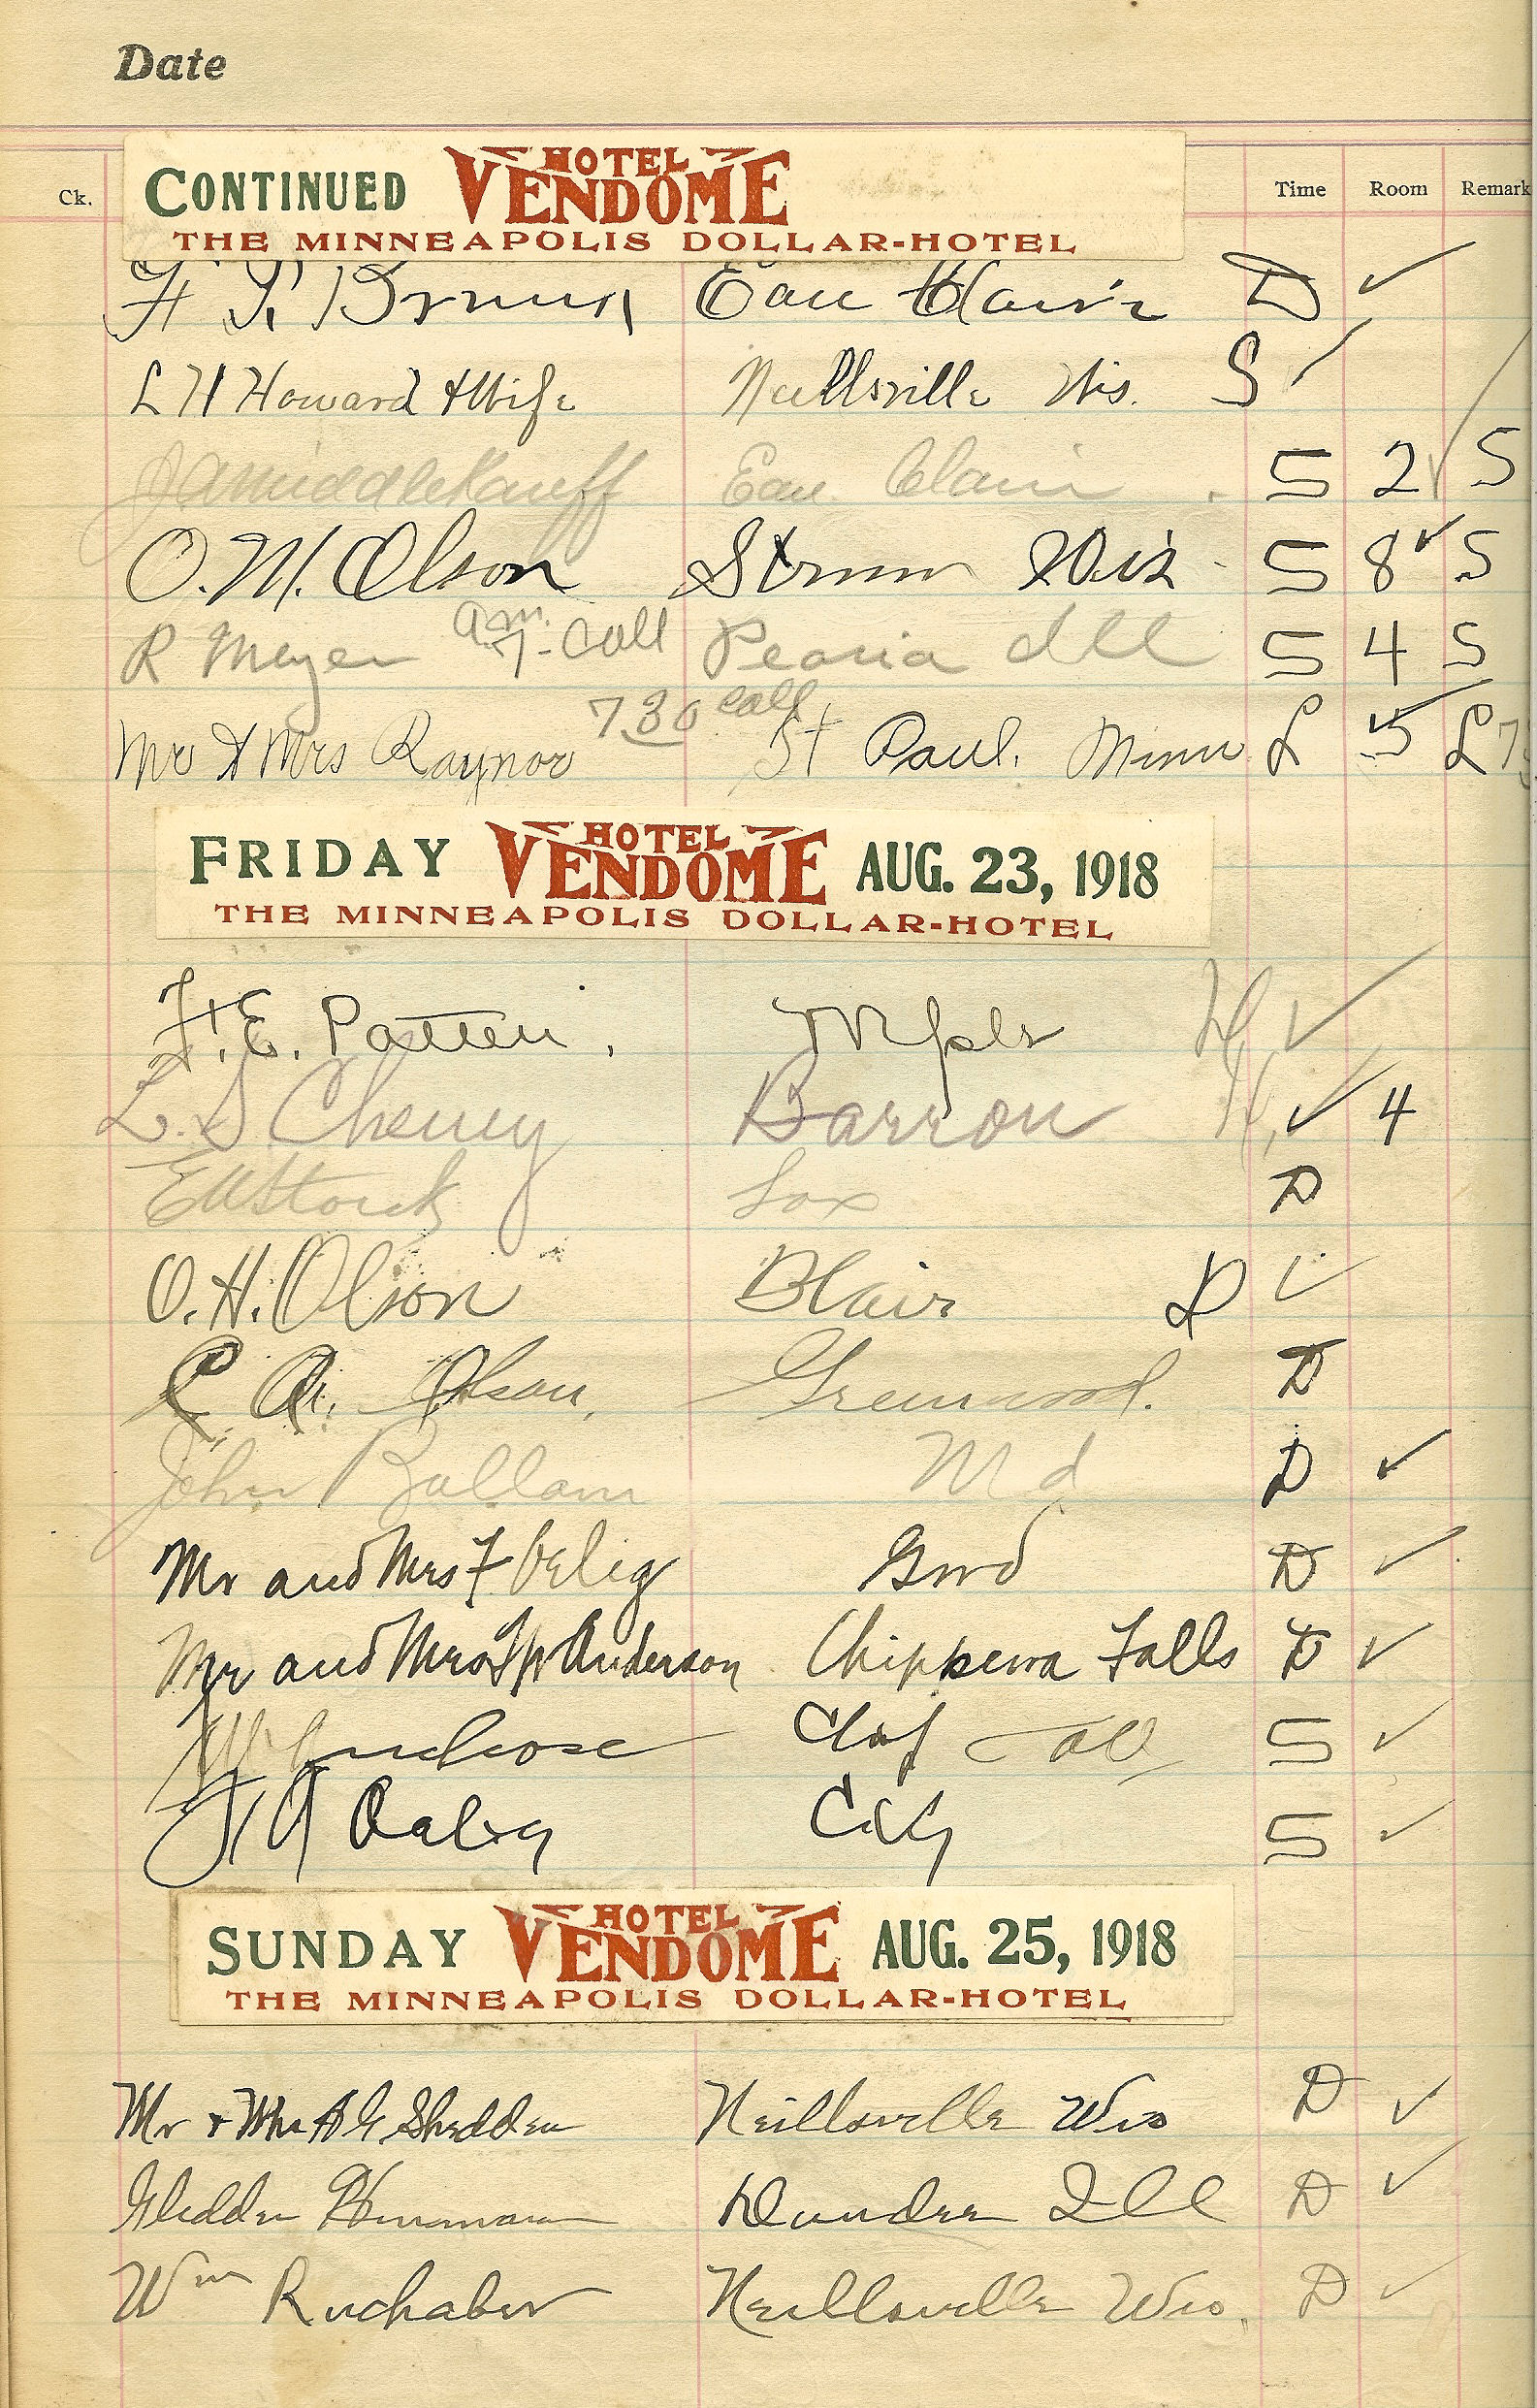 Date
Ck. Time Room Remark
CONTINUED HOTEL VENDOME
THE MINNEAPOLIS DOLLAR-HOTEL
Eau Claire D ✓
L H Howard & Wife Neillsville Wis. S ✓
J A Middlekauff Eau Claire S 2 ✓ S
O. M. Olson Strum Wis S 8 ✓ S
R Meyer am 7- Call Peoria Ill S 4 S
Mr & Mrs Raynor 7 30 call St Paul. Minn L 5 ✓ L
FRIDAY HOTEL VENDOME AUG. 23, 1918
THE MINNEAPOLIS DOLLAR-HOTEL
F. E. Patten. Mpls ✓
L. S Cheney Barron ✓ 4
D
O. H. Olson Blair D ✓
Olson, Greenwood. D
John Ballam Md D ✓
Mr and Mrs F D ✓
Mr and Mrs Anderson Chippewa Falls D ✓
S ✓
City S ✓
SUNDAY HOTEL VENDOME AUG. 25, 1918
THE MINNEAPOLIS DOLLAR-HOTEL
Mr & Mrs A G Shedden Neillsville Wis D ✓
Dundee Ill D ✓
Wm Ruchaber Neillsville Wis. D ✓